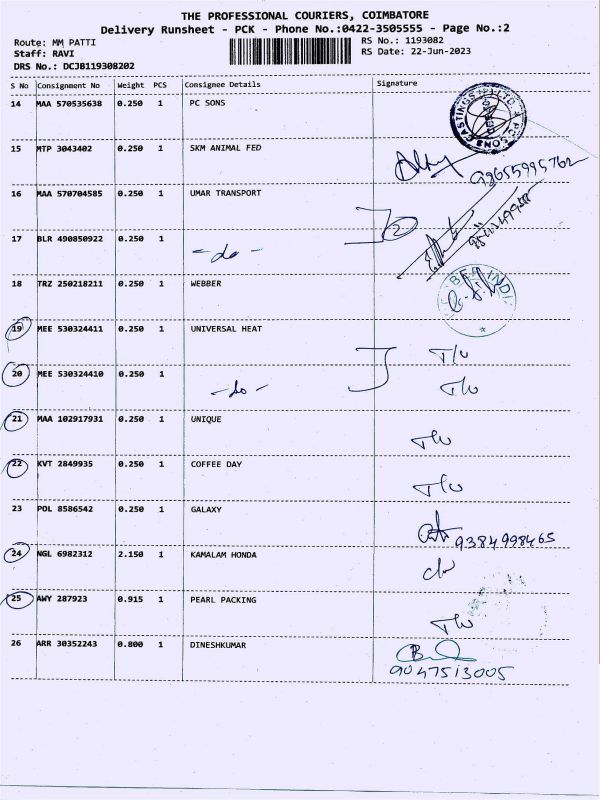 THE PROFESSIONAL COURIERS, COIMBATORE
Delivery Runsheet - PCK - Phone No.:0422-3505555 - Page No.:2
Route: MM PATTI RS No.: 1193082
Staff: RAVI RS Date: 22-Jun-2023
DRS No.: DCJB119308202
S No Consignment No Weight PCS Consignee Details Signature
14 MAA 570535638 0.250 1 PC SONS
15 MTP 3043402 0.250 1 SKM ANIMAL FED
98655995762
16 MAA 570704585 0.250 1 UMAR TRANSPORT
2
17 BLR 490850922 0.250 1 - do -
18 TRZ 250218211 0.250 1 WEBBER
19 MEE 530324411 0.250 1 UNIVERSAL HEAT T/w
20 MEE 530324410 0.250 1 - do - T/w
21 MAA 102917931 0.250 1 UNIQUE T/w
22 KVT 2849935 0.250 1 COFFEE DAY T/w
23 POL 8586542 0.250 1 GALAXY 9384998465
24 NGL 6982312 2.150 1 KAMALAM HONDA
25 AWY 287923 0.915 1 PEARL PACKING T/w
26 ARR 30352243 0.800 1 DINESHKUMAR
9047513005